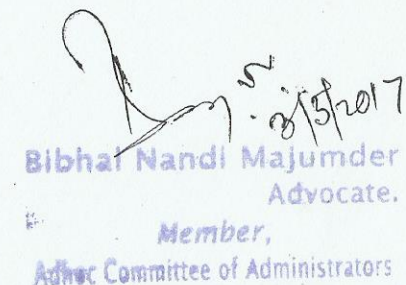 3/5/2017
Bibhal Nandi Majumder
Advocate.
Member,
Adhoc Committee of Administrators